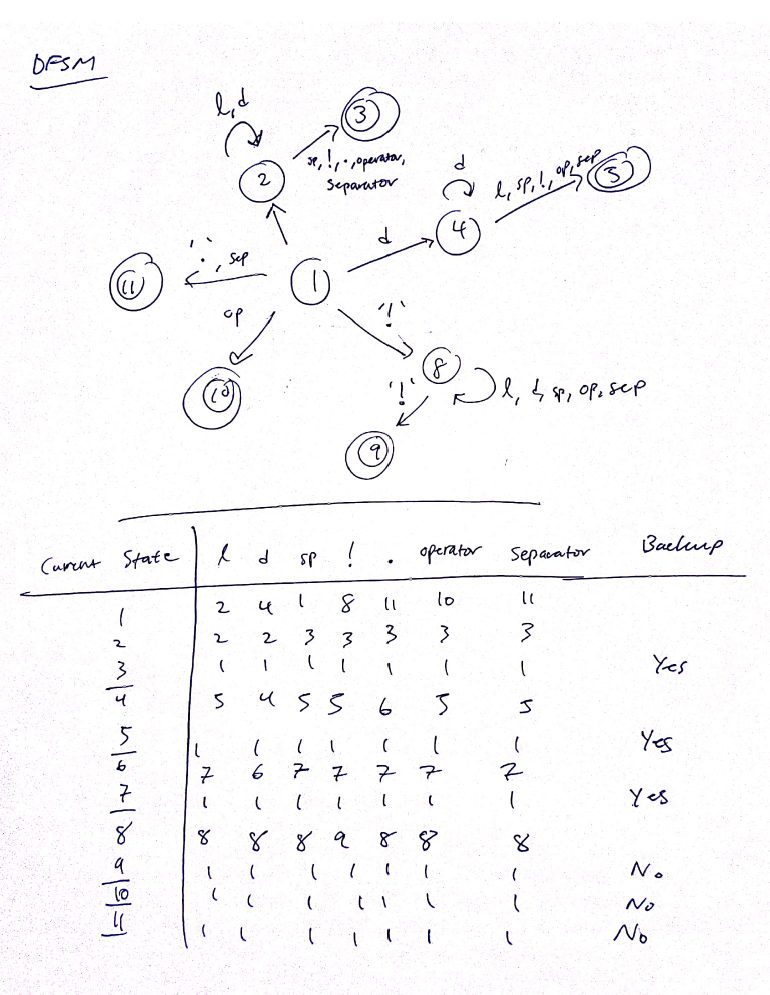 DFSM
l, d
3
sp, !, ., operator,
Separator
2
d
l, sp, !, op, sep
4
5
d
'.', sep
11
1
op
'!'
10
8
'!'
l, d, sp, op, sep
9
Current State l d sp ! . operator Separator Backup
1 2 4 1 8 11 10 11
2 2 2 3 3 3 3 3
3 1 1 1 1 1 1 1 Yes
4 5 4 5 5 6 5 5
5 1 1 1 1 1 1 1 Yes
6 7 6 7 7 7 7 7
7 1 1 1 1 1 1 1 Yes
8 8 8 8 9 8 8 8
9 1 1 1 1 1 1 1 No
10 1 1 1 1 1 1 1 No
11 1 1 1 1 1 1 1 No